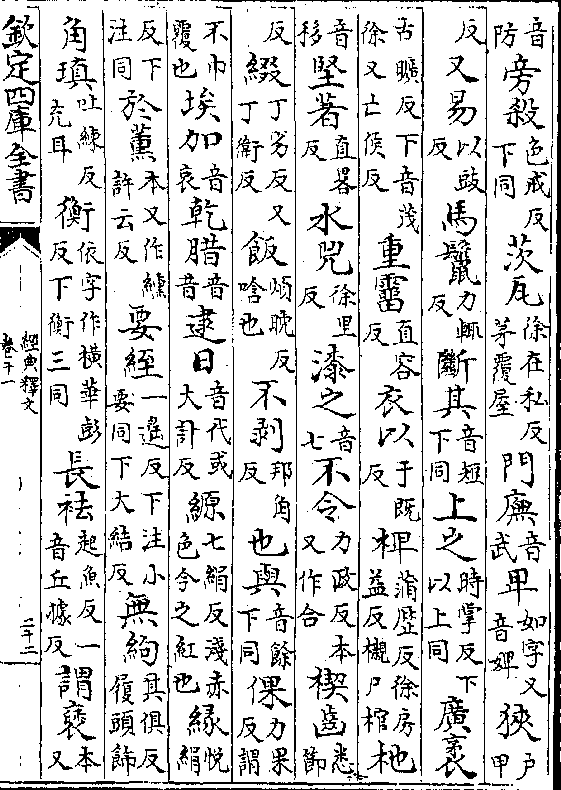 音防旁殺色戒反下同茨瓦徐在私反茅覆屋門廡音武卑如字又音婢狹户甲
反又易以豉反馬鬛力輒反斷其音短下同上之時掌反下以上同廣袤
古曠反下音茂徐又亡侯反重霤直容反衣以于既反椑蒲歷反徐房益反櫬尸棺杝
音移堅著直畧反水兕徐里反漆之音七不令力政反本又作合楔齒悉節
反綴丁劣反又丁衛反飯煩晚反唅也不剥邦角反也與音餘下同倮力果反謂
不巾覆也埃加音哀乾腊音昔逮日音代或大計反縓七絹反淺赤色今之紅也緣悦絹
反下注同於薰本又作纁許云反要絰一遥反下注小要同下大結反無絇其俱反屨頭飾
角瑱吐練反充耳衡依字作横華彭反下衡三同長袪起魚反一音丘據反謂褎本又
欽定四庫全書
經典釋文
卷十一
二十二